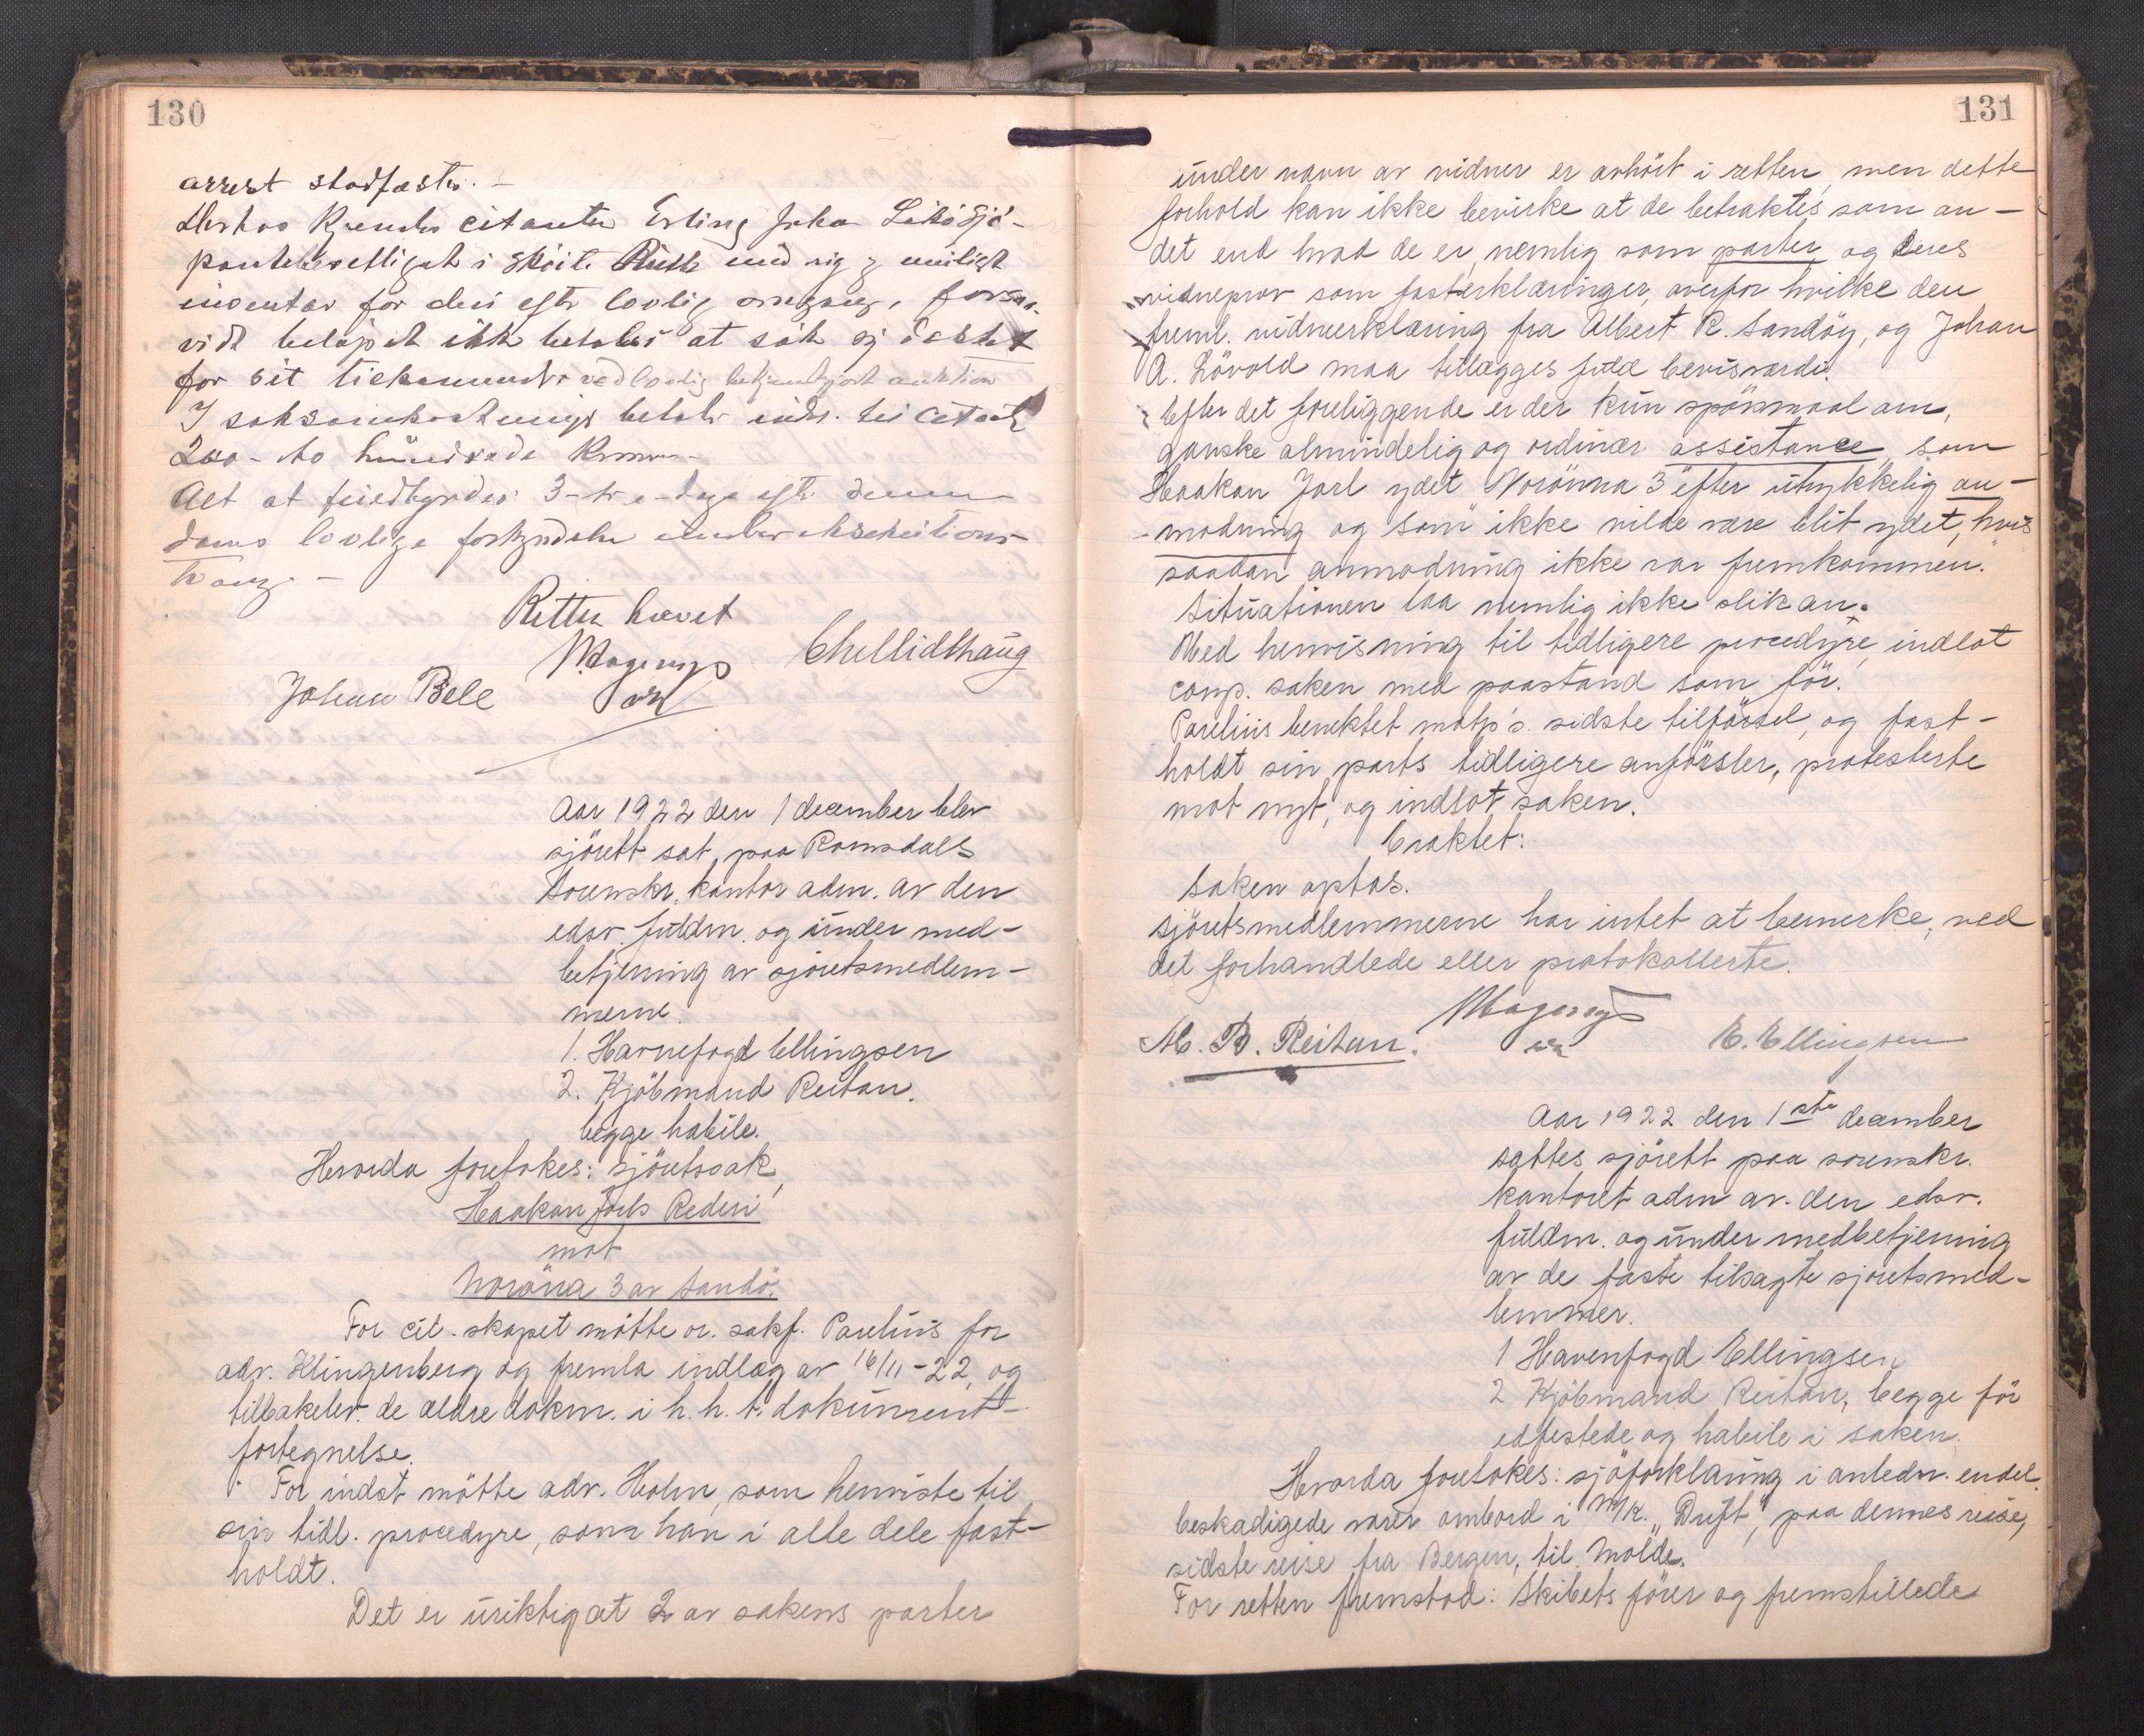 130
arrest stadfæstes. —
Derhos kjendes citanten Erling Sjö-
panteberettiget i sköite Ruth med rig og
inventar for den efter lovlig omgang, forsaa-
vidt belöpet ikke betales at sök sig dækket
for sit tilkommende ved lovlig bekjentgjort auktion
I saksomkostninger betaler inds. til citant
200 - to hundrede kroner -
Alt at efterkommes 3 - tre - dage efter denne
doms lovlige forkyndelse under eksekutions-
tvang. —
Retten hævet
Johan Bele
Aar 1922 den 1 december blev
sjörett sat paa Romsdals
sorenskr. kontor adm. av den
edsv. fuldm. og under med-
betjening av sjöretsmedlem-
merne.
1. Havnefogd Ellingsen
2. Kjöbmand Reitan.
begge habile.
Hvorda foretokes: sjöretssak,
Haakon Jarls Rederi
mot
Noröna 3 av Sandö.
For cit.skapet mötte or. sakf. Parelius for
adv. Klingenberg og fremla indlæg av 16/11-22, og
tilbakelev. de ældre dokm. i h. h. t. dokument-
fortegnelse.
For indst mötte adv. Holm, som henviste til
sin tidl. procedyre, som han i alle dele fast-
holdt.
Det er uriktig at 2 av sakens parter
131
under navn av vidner er avhört i retten, men dette
forhold kan ikke bevirke at de betraktes som an-
det end hvad de er, nemlig som parter og deres
vidneprov som partserklæringer, overfor hvilke den
freml. vidneerklæring fra Albert R. Sandöy, og Johan
A. Lövold maa tillægges fuld bevisværdi.
Efter det foreliggende er der kun spörsmaal om,
ganske almindelig og ordinær assistance, som
Haakon Jarl ydet Norönna 3 efter utrykkelig an-
modning og som ikke vilde være blit ydet, hvis
saadan anmodning ikke var fremkommen.
Situationen laa nemlig ikke slik an.
Med henvisning til tidligere procedyre, indlot
comp. saken med paastand som för.
Parelius benektet motp's. sidste tilförsel, og fast-
holdt sin parts tidligere anförsler, protesterte
mot nyt, og indlot saken.
Eraktet:
Saken optas.
Sjöretsmedlemmerne har intet at bemerke, ved
det forhandlede eller protokollerte.
M. B. Reitan.
E. Ellingsen
Aar 1922 den 1ste december
sattes sjörett paa sorenskr.
kontoret adm av. den edsv.
fuldm. og under medbetjening
av de faste tilsagte sjöretsmed-
lemmer.
1 Havenfogd Ellingsen
2 Kjöbmand Reitan, begge för
edfestede og habile i saken.
Hvorda foretokes: sjöforklaring i anledn. endel
beskadigede varer ombord i M/K. "Drift", paa dennes reise,
sidste reise fra Bergen, til Molde.
For retten fremstod: Skibets förer og fremstillede